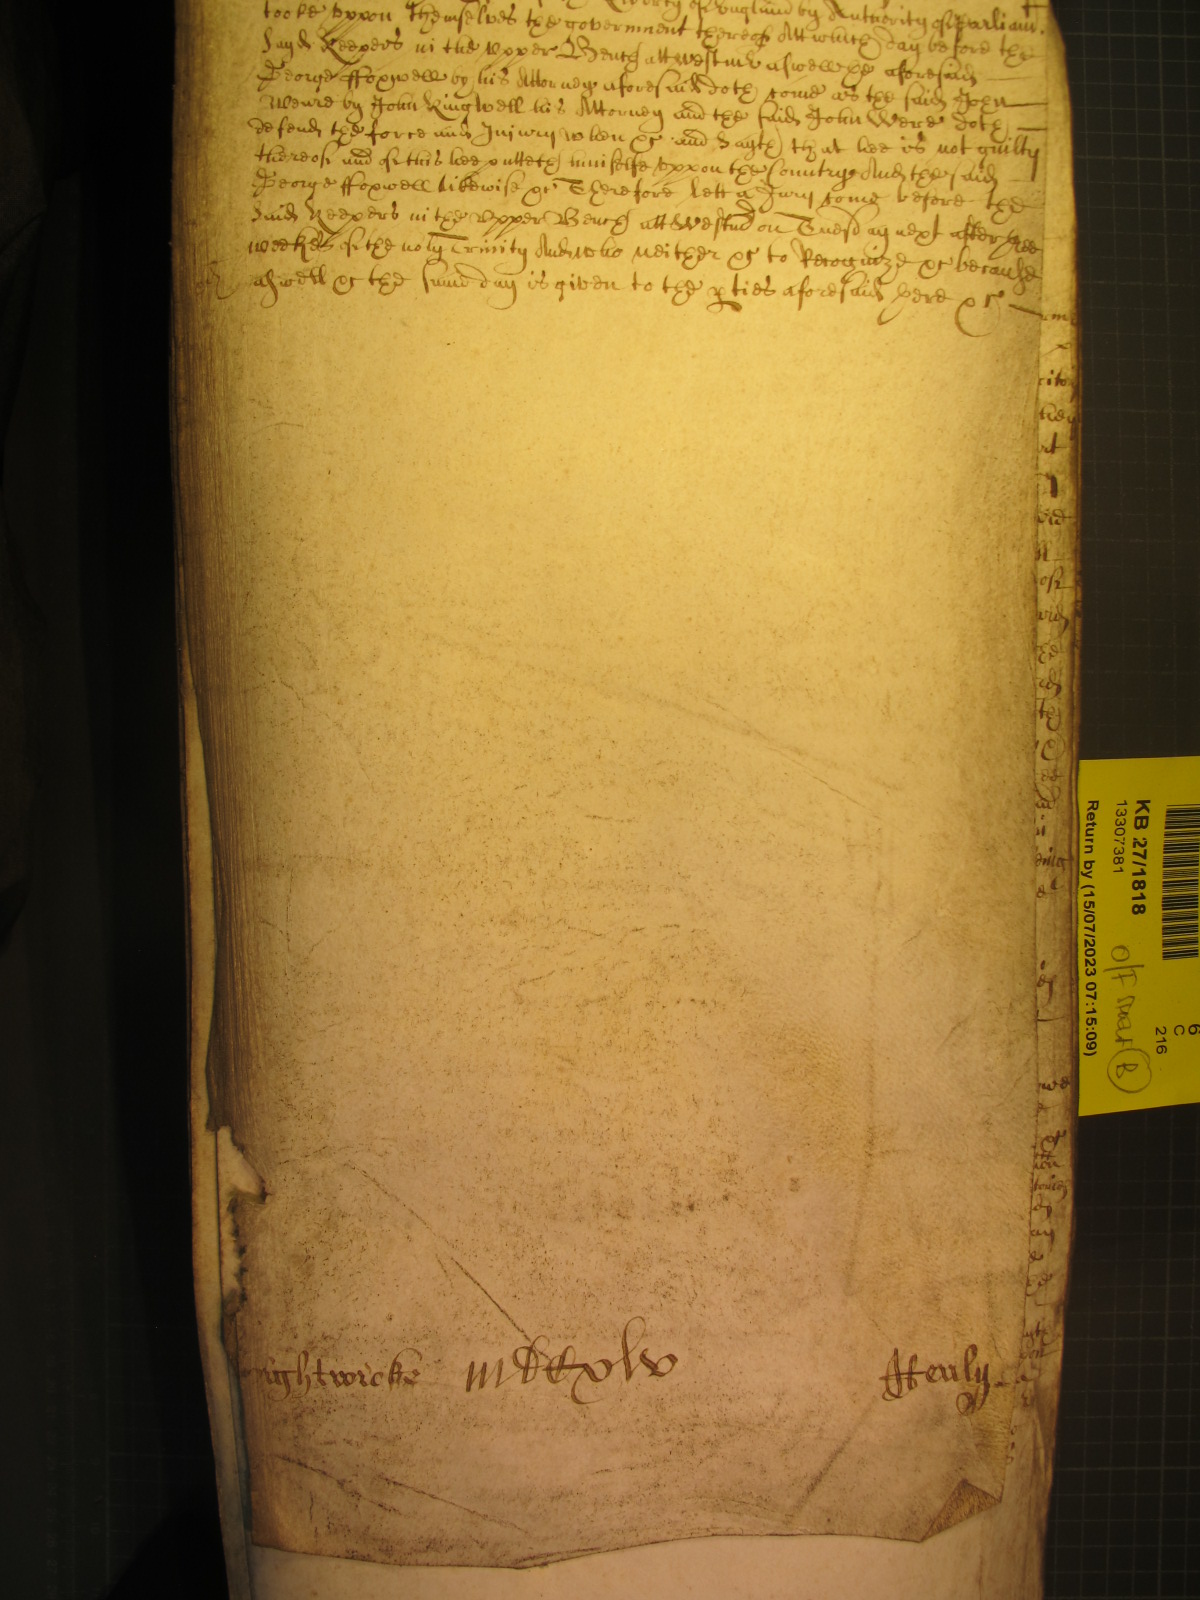 Liberty of England by Authority of Parliam.
tooke vppon themselves the government thereof Att which day before the
sayd Keepers in the vpper Bench att westm̄ aswell the aforesaid
George ffoxwell by his Attorney aforesaid doth come as the said John
Weare by John Kingwell his Attorney and the said John Were doth
defend the force and Injury when &c and sayth that hee is not guilty
thereof and of this hee putteth himselfe vppon the Country And the said
George ffoxwell likewise &c Therefore lett a Jury come before the
said Keepers in the vpper Bench att Westm̄ on Tuesday next after three
weekes of the holy Trinity And who neither &c to Recognize &c because
aswell &c the same day is given to the p̱ties aforesaid here &c
ightwicke mdccxlv Henly
KB 27/1818
13307381
Return by (15/07/2023 07:15:09)
6
C
216
off smart B